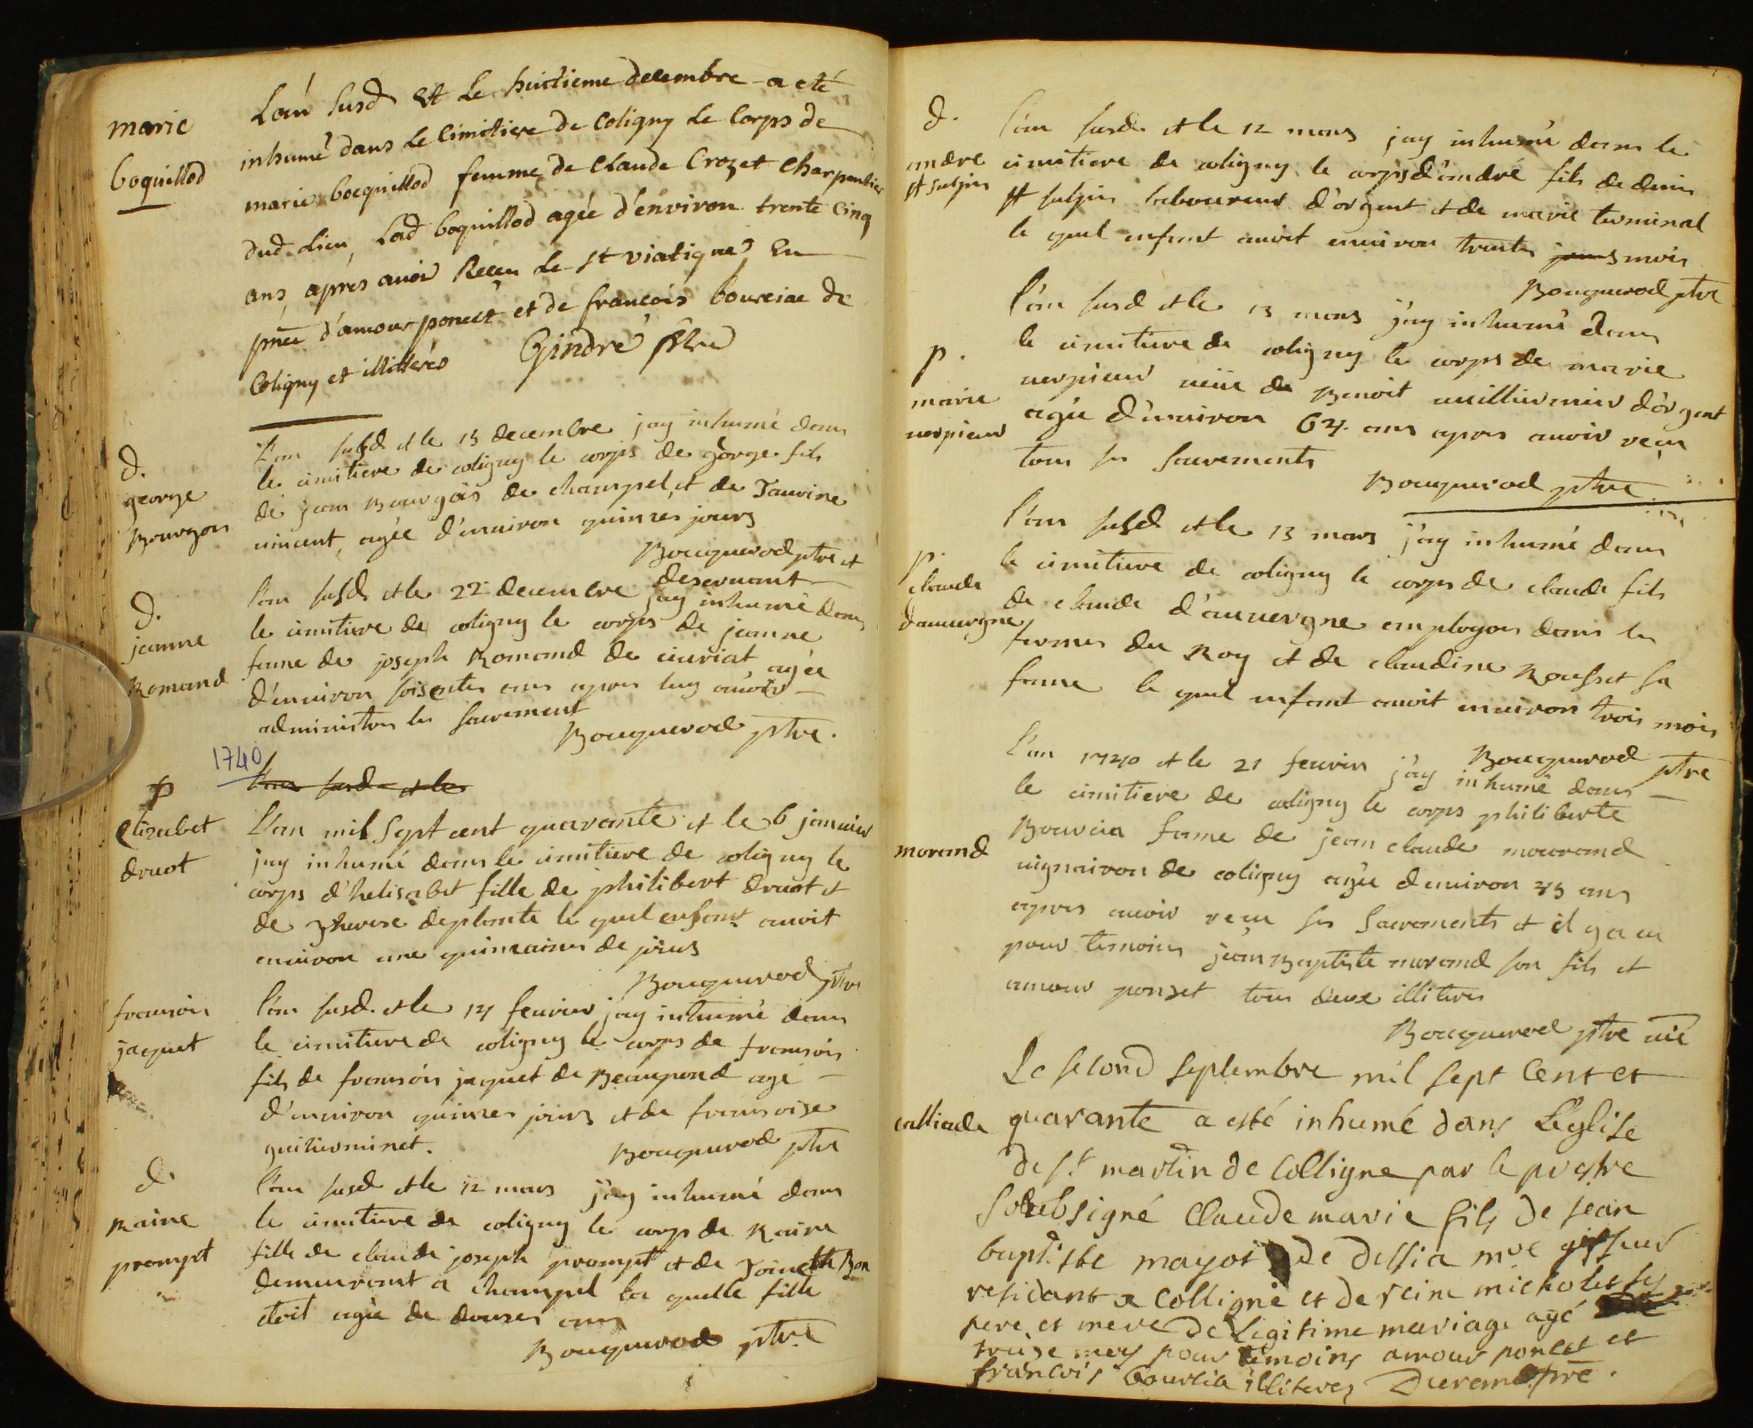 marie
boquillod
L'an susd Et Le huictieme decembre a eté
inhumé dans Le Cimitiere de Coligny Le Corps de
marie bocquillod femme de Claude Crozet Charpentier
dud. Lieu, Lad boquillod agée d'environ trente Cinq
ans, apres avoir Receu Le st viatique En
pnce d'amour poncet et de francois bourcia de
Coligny et illitéres Gindre ptre
d.
george
Bourgois
l'an susd et le 13 decembre jay inhumé dans
le cimitiere de coligny le corps de george fils
de jean Bourgois de champel, et de
vincent, agée d'environ quinzes jours
Bocquerod ptre et
deservant
d.
jeanne
Romand
l'an susd et le 22 decembre jay inhumé dans
le cimitiere de coligny le corps de jeanne
fame de joseph Romand de civriat agée
d'environ soisentes ans apres luy avoir
administres les sacrement
Bocquerod ptre.
1740
l'an susd et le
p
Elizabet
druot
L'an mil sept cent quarante et le 6 janvier
jay inhumé dans le cimitiere de coligny le
corps d'helisabet fille de philibert druot et
de therese deplante le quel enfant avoit
environ une quinzaines de jours
Bocquerod ptre
fransois
jaquet
l'an susd. et le 14 fevrier jay inhumé dans
le cimitiere de coligny le corps de fransois
fils de fransois jaquet de Beaupond agé
d'environ quinzes jours et de fransoise
Bocquerod ptre
d.
Raine
prompt
l'an susd et le 12 mars j'ay inhumé dans
le cimitiere de coligny le corps de Raine
fille de claude joseph prompt et de Bon
demeurant a champel la quelle fille
etoit agée de douzes ans
Bocquerod ptre
d.
andre
st sulpis
l'an susd. et le 12 mars jay inhumé dans le
cimitiere de coligny le corps d'andré fils de denis
st sulpis laboureur d'orgent et de marie terminal
le quel enfant avoit environ trentes jours mois
Bocquerod ptre
p.
marie
verpieur
l'an susd et le 13 mars j'ay inhumé dans
le cimitiere de coligny le corps de marie
verpieur veüe de Benoit d'orgent
agée d'environ 64 ans apres avoir reçu
tous ses sacrements
Bocquerod ptre
p.
claude
d'auvergne
l'an susd et le 13 mars j'ay inhumé dans
le cimitiere de coligny le corps de claude fils
de claude d'auvergne employer dans les
fermes du Roy et de claudine Rousset sa
fame le quel enfant avoit environ trois mois
Bocquerod ptre
morand
l'an 1740 et le 21 fevrier j'ay inhumé dans
le cimitiere de coligny le corps philiberte
Bourcia fame de jean claude mourand
vigneron de coligny agée d'environ 45 ans
apres avoir reçu ses sacrements et il y a eu
pour temoins jean Baptiste morand son fils et
amour ponset tous deux illiteres
Bocquerod ptre vic
Le second septembre mil sept Cent et
quarante a esté inhumé dans L'Eglise
de st martin de Colligne par le prestre
soubsigné Claude marie fils de jean
baptiste mayot de dessia me
residant a Colligne et de reine ses
pere et mere de Legitime mariage agé
treize mois pour témoins amour poncet et
francois bourcia illiteres pre.